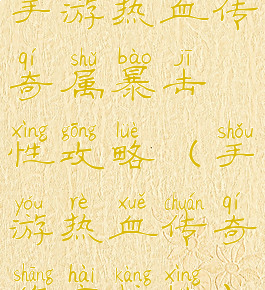 手游热血传
qí shǔ bào jī
奇属暴击
xìng gōng lüè shǒu
性攻略（手
yóu rè xuě chuán qí
游热血传奇
shāng hài kàng xìng